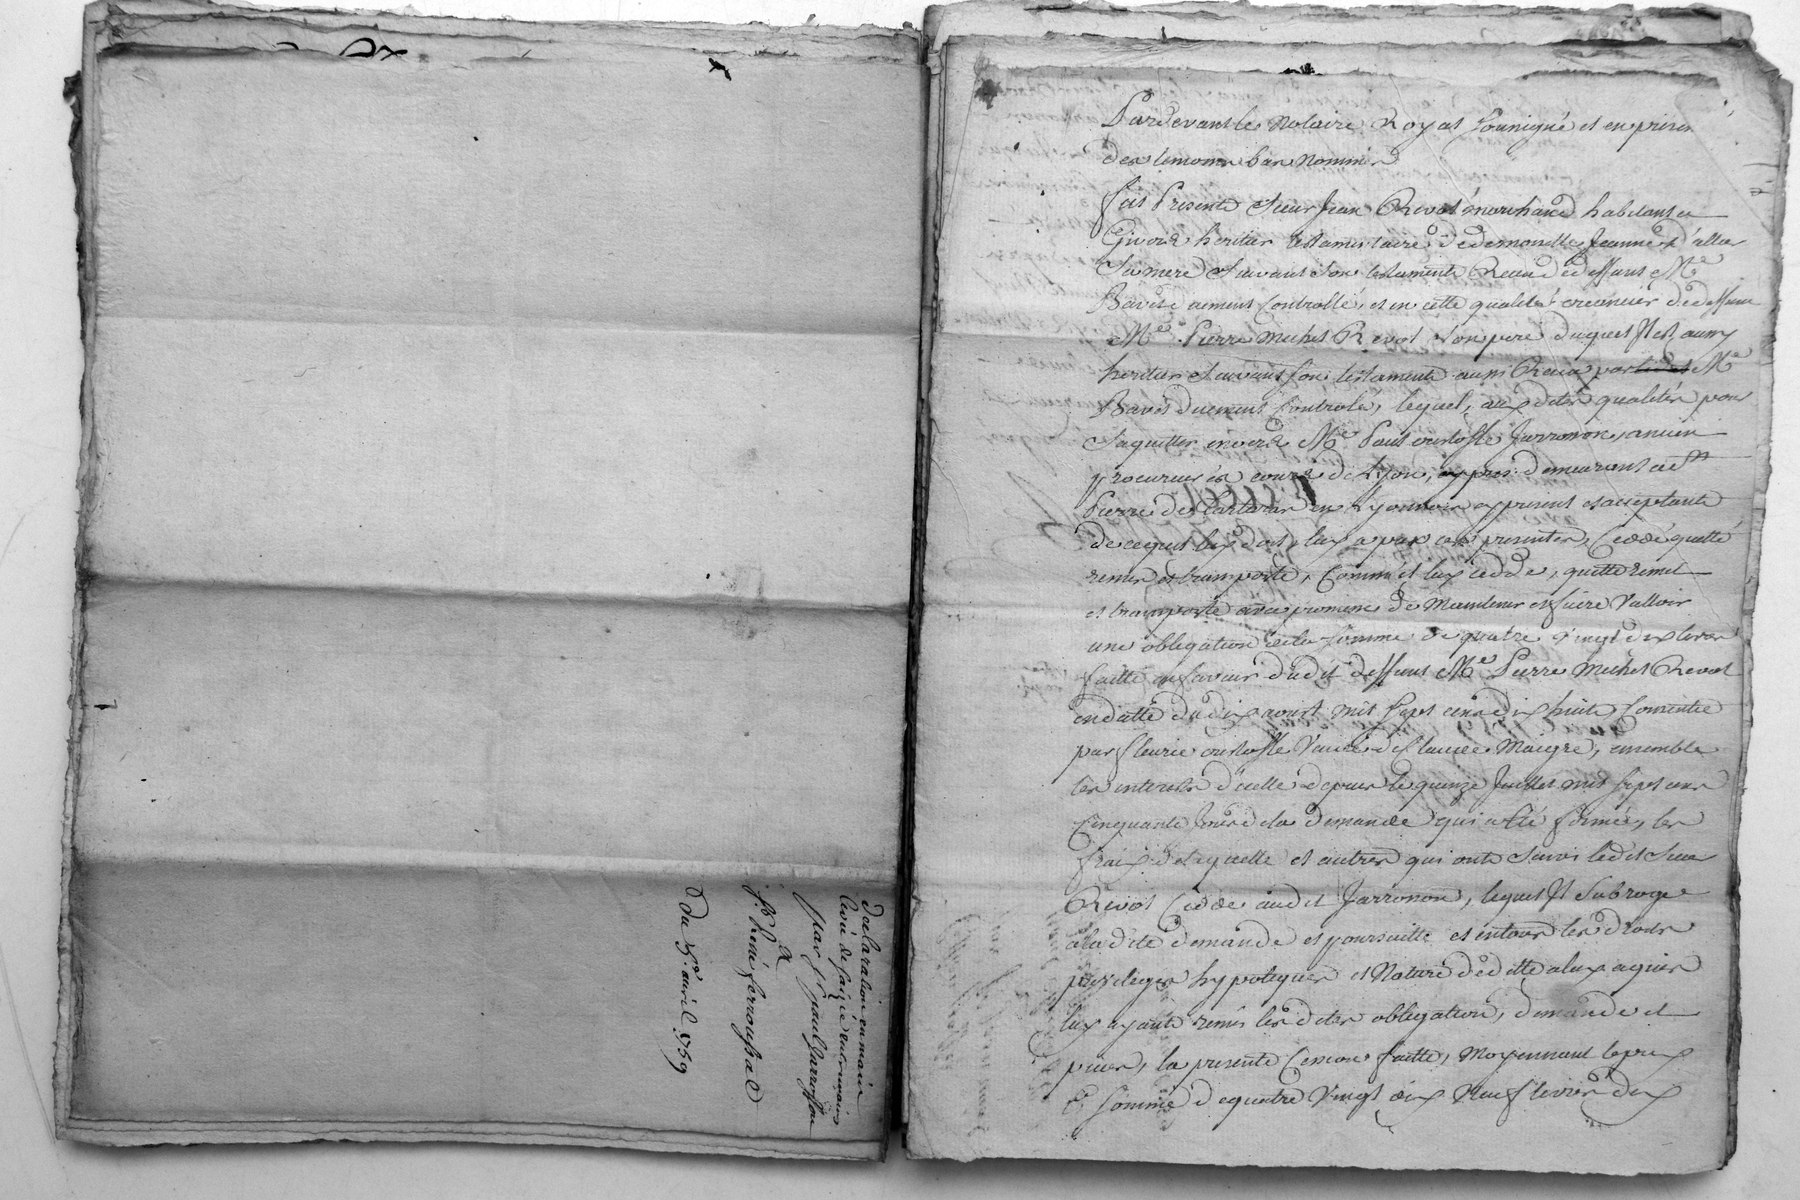 declaration en main
levée de saisie entre mains
par Sr paul Jarrosson
a
Sr René ferroussat
du 5e. avril 1759
Pardevant le Notaire Royal sousigné et en presen
des temoins bas nommés
fut Present Sieur Jean Revol marchand habitant a
Givors heritier testamentaire de demoiselle Jeanne d'allier
Sa mere Suivant Son testament Receu de deffunt Me
Bavet duement Controllé, et en cette qualité creancier de deffunt
Me Pierre Michel Revol Son pere duquel Il est aussy
heritier Suivant Son testament aussi Receu par Me
Bavet duement Controlé, lequel, aux dites qualités pour
Saquitter envers Me Paul Jarronon, ancien
procureur es cours de Lyon, a present demeurant a St
Pierre de en Lyonnois a present et acceptant
de ce quil luy doit, luy a par ces presentes, Ceddé quitté
remis et transporté, Comme il luy cedde, quitte remet
et transporte avec promesse de Maintenir et faire Valloir
une obligation de la Somme de quatre vingt dix livres
faitte en faveur dudit deffunt Me Pierre Michel Revol
en datte du dix aoust mil Sept cens dix huit Consentie
par fleurie Veuve de Claude Maigre, ensemble
les interets d'icelle depuis le quinze Juillet mil Sept cens
Cinquante Jour de la demande qui a été formée, les
fraix de laquelle et autres qui ont Suivi ledit Sieur
Revol Cedde audit Jarronon, lequel Il Subroge
a la dite demande et poursuitte et en tous les droits
privileges hypoteques et Nature de dette a luy aquis
luy ayant remis les dites obligation, demande et
pieces, la presente Cession faitte, Moyennant le prix
Et Somme de quatre Vingt dix Neuf livres dix